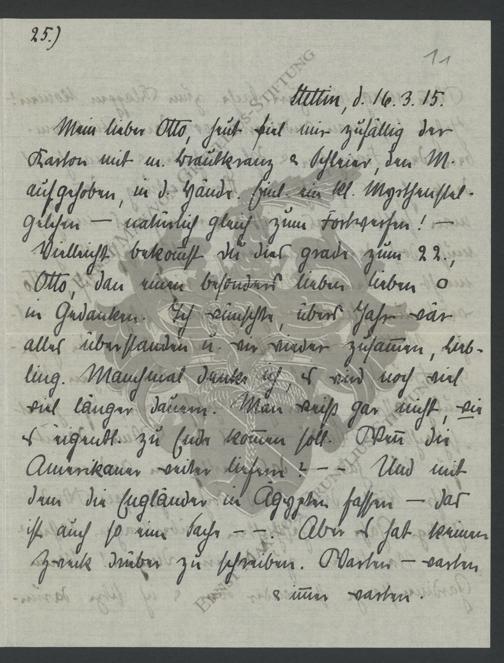 25.)
11
Stettin, d. 16.3.15.
Mein lieber Otto, heut fiel mir zufällig der
Karton mit m. Brautkranz & Schleier, den M.
aufgehoben, in d. Hände. Fiel ein kl. Myrthenstel-
gelchen — natürlich gleich zum Fortwerfen! —
Vielleicht bekommst du dies grade zum 22.,
Otto, dann einen besonders lieben lieben o
in Gedanken. Ich wünschte, übers Jahr wär
alles überstanden u. wir wieder zusammen, Lieb-
ling. Manchmal denke ich, es wird noch viel
viel länger dauern. Man weiß gar nicht, wie
es eigentl. zu Ende kommen soll. Wenn die
Amerikaner weiter liefern? – – Und mit
dem die Engländer in Ägypten fassen — das
ist auch so eine Sache – –. Aber es hat keinen
Zweck drüber zu schreiben. Warten — warten
& immer warten.